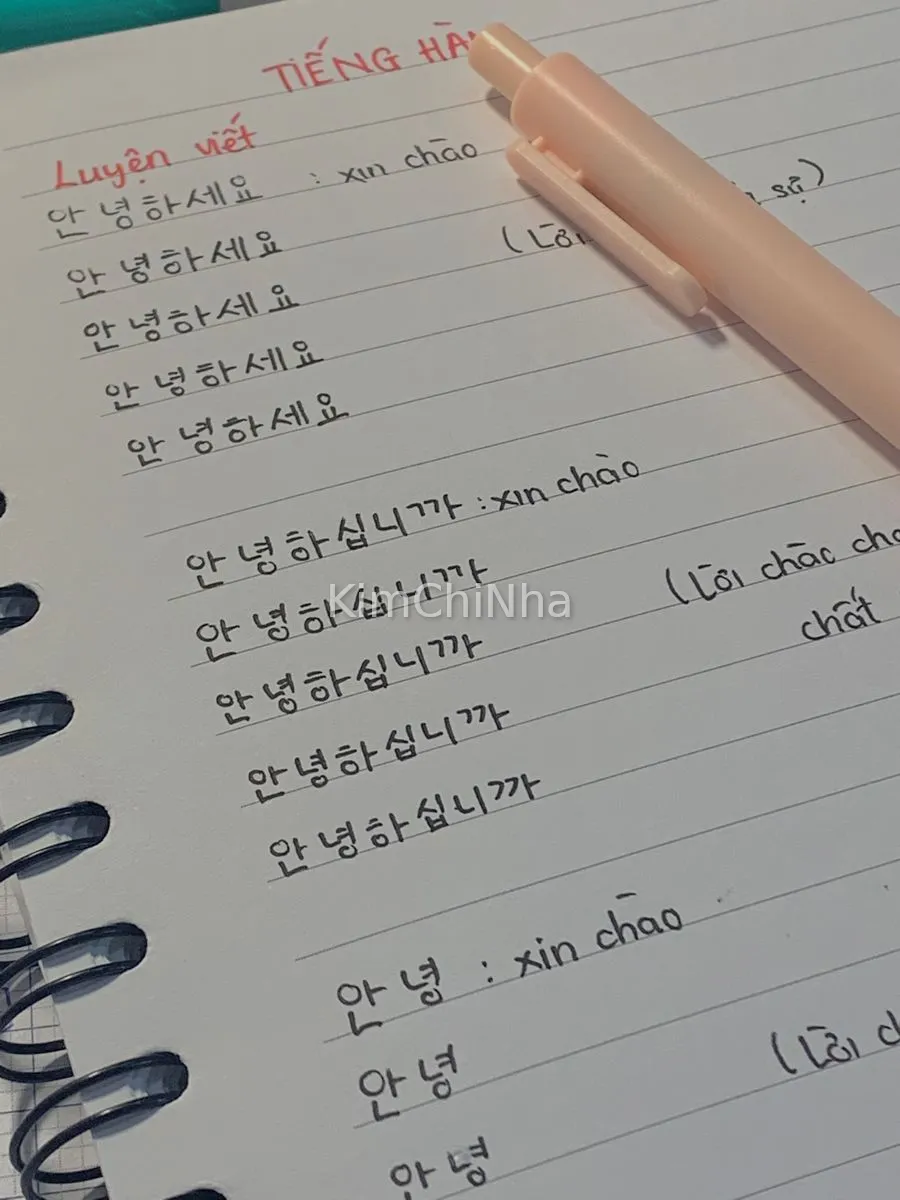 TIẾNG HÀ
Luyện viết
안녕하세요 : xin chào
안녕하세요
(Lời sự)
안녕하세요
안녕하세요
안녕하세요
안녕하십니까 : xin chào
안녕하십니까
(Lời chào
안녕하십니까
chất
안녕하십니까
안녕하십니까
안녕 : xin chào
안녕
(Lời
안녕
KimChiNha